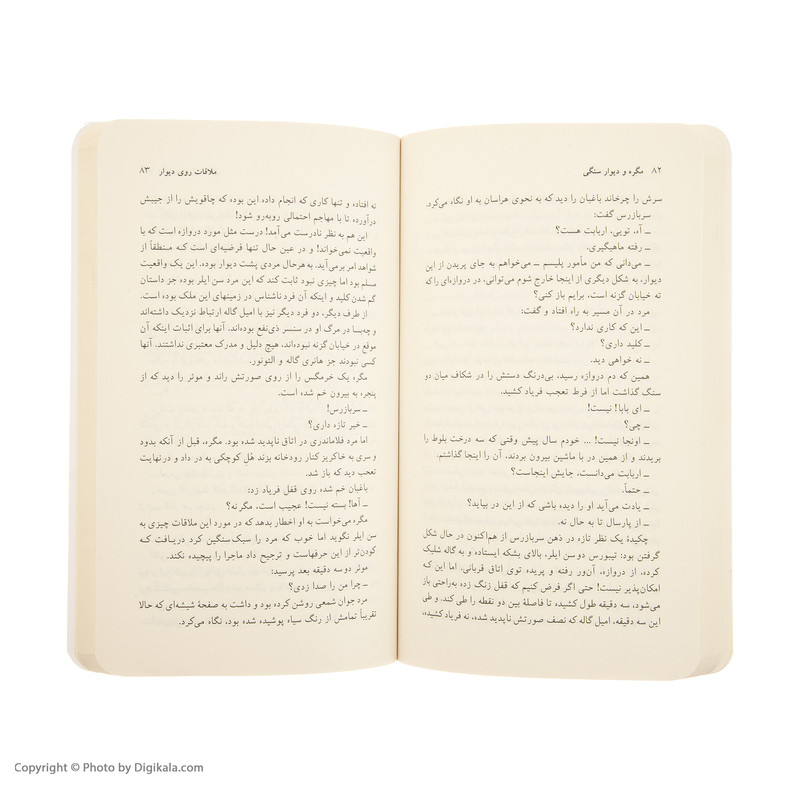 ۸۲ مگره و دیوار سنگی
سرش را چرخاند باغبان را دید که به نحوی هراسان به او نگاه می‌کرد.
سربازرس گفت:
ــ آه، تویی. اربابت هست؟
ــ رفته ماهیگیری.
ــ می‌دانی که من مأمور پلیسم ــ می‌خواهم به جای پریدن از این
دیوار، به شکل دیگری از اینجا خارج شوم می‌توانی، در دروازه‌ای را که
ته خیابان گزنه است، برایم باز کنی؟
مرد در آن مسیر به راه افتاد و گفت:
ــ این که کاری ندارد؟
ــ کلید داری؟
ــ نه خواهی دید.
همین که دم دروازه رسید، بی‌درنگ دستش را در شکاف میان دو
سنگ گذاشت اما از فرط تعجب فریاد کشید.
ــ ای بابا! نیست!
ــ چی؟
ــ اونجا نیست! ... خودم سال پیش وقتی که سه درخت بلوط را
بریدند و از همین در با ماشین بیرون بردند، آن را اینجا گذاشتم.
ــ اربابت می‌دانست، جایش اینجاست؟
ــ حتماً.
ــ یادت می‌آید او را دیده باشی که از این در بیاید؟
ــ از پارسال تا به حال نه.
چکیدهٔ یک نظر تازه در ذهن سربازرس از هم‌اکنون در حال شکل
گرفتن بود: تیبورس دوسن ایلر، بالای بشکه ایستاده و به گاله شلیک
کرده، از دروازه، آن‌ور رفته و پریده توی اتاق قربانی. اما این که
امکان‌پذیر نیست! حتی اگر فرض کنیم که قفل زنگ زده به‌راحتی باز
می‌شود، سه دقیقه طول کشیده تا فاصلهٔ بین دو نقطه را طی کند. و طی
این سه دقیقه، امیل گاله که نصف صورتش ناپدید شده، نه فریاد کشیده،
ملاقات روی دیوار ۸۳
نه افتاده و تنها کاری که انجام داده این بوده که چاقویش را از جیبش
درآورده تا با مهاجم احتمالی روبه‌رو شود!
این هم به نظر نادرست می‌آمد! درست مثل مورد دروازه است که با
واقعیت نمی‌خواند! و در عین حال تنها فرضیه‌ای است کـه مـنطقاً از
شواهد امر برمی‌آید. به‌هرحال مردی پشت دیوار بوده. این یک واقعیت
مسلم بود اما چیزی نبود ثابت کند که این مرد سن ایلر بوده جز داستان
گم شدن کلید و اینکه آن فرد ناشناس در زمینهای این ملک بوده است.
از طرف دیگر، دو فرد دیگر نیز با امیل گاله ارتباط نزدیک داشته‌اند
و چه‌بسا در مرگ او در سنسر ذی‌نفع بوده‌اند. آنها برای اثبات اینکه آن
موقع در خیابان گزنه نبوده‌اند، هیچ دلیل و مدرک معتبری نداشتند. آنها
کسی نبودند جز هانری گاله و التونور.
مگره یک خرمگس را از روی صورتش راند و موئر را دید که از
پنجره به بیرون خم شده است.
ــ سربازرس!
ــ خبر تازه داری؟
اما مرد فلاماندری در اتاق ناپدید شده بود. مگره، قبل از آنکه بدود
و سری به خاکریز کنار رودخانه بزند هُل کوچکی به در داد و در نهایت
تعجب دید که باز شد.
باغبان خم شده روی قفل فریاد زد:
ــ آها! بسته نیست! عجیب است، مگر نه؟
مگره می‌خواست به او اخطار بدهد که در مورد این ملاقات چیزی به
سن ایلر نگوید اما خوب که مرد را سبک‌سنگین کرد دریـافـت کـه
کودن‌تر از این حرفهاست و ترجیح داد ماجرا را پیچیده نکند.
موئر دوسه دقیقه بعد پرسید:
ــ چرا من را صدا زدی؟
مرد جوان شمعی روشن کرده بود و داشت به صفحهٔ شیشه‌ای که حالا
تقریباً تمامش از رنگ سیاه پوشیده شده بود، نگاه می‌کرد.
Copyright © Photo by Digikala.com